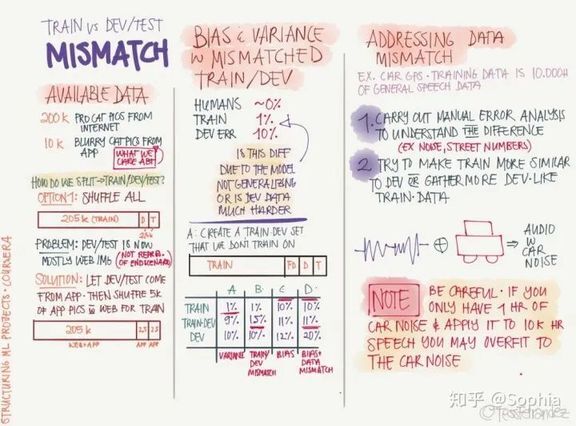 TRAIN vs DEV/TEST
MISMATCH
AVAILABLE DATA
200 K PRO CAT PICS FROM
INTERNET
10 K BLURRY CAT PICS FROM
APP
WHAT WE
CARE ABT
HOW DO WE SPLIT → TRAIN/DEV/TEST?
OPTION 1: SHUFFLE ALL
205 K (TRAIN) D T
PROBLEM: DEV/TEST IS NOW
MOSTLY WEB IMG
SOLUTION: LET DEV/TEST COME
FROM APP. THEN SHUFFLE 5K
OF APP PICS W WEB FOR TRAIN
205 K 2.5 2.5
WEB+APP APP APP
STRUCTURING ML PROJECTS · COURSERA
BIAS & VARIANCE
W MISMATCHED
TRAIN/DEV
HUMANS ~0%
TRAIN 1%
DEV ERR 10%
IS THIS DIFF
DUE TO THE MODEL
NOT GENERALIZING
OR IS DEV DATA
MUCH HARDER
A: CREATE A TRAIN DEV SET
THAT WE DON'T TRAIN ON
TRAIN TD D T
A B C D
TRAIN 1% 1% 10% 10%
TRAIN-DEV 9% 1.5% 11% 11%
DEV 10% 10% 12% 20%
VARIANCE TRAIN/ BIAS BIAS+
DEV DATA
MISMATCH MISMATCH
ADDRESSING DATA
MISMATCH
EX. CAR GPS · TRAINING DATA IS 10.000H
OF GENERAL SPEECH DATA
1. CARRY OUT MANUAL ERROR ANALYSIS
TO UNDERSTAND THE DIFFERENCE
(EX NOISE, STREET NUMBERS)
2 TRY TO MAKE TRAIN MORE SIMILAR
TO DEV OR GATHER MORE DEV-LIKE
TRAIN-DATA
⊕ ⇒ AUDIO
W
CAR
NOISE
NOTE BE CAREFUL · IF YOU
ONLY HAVE 1 HR OF
CAR NOISE & APPLY IT TO 10K HR
SPEECH YOU MAY OVERFIT TO
THE CAR NOISE
知乎 @Sophia